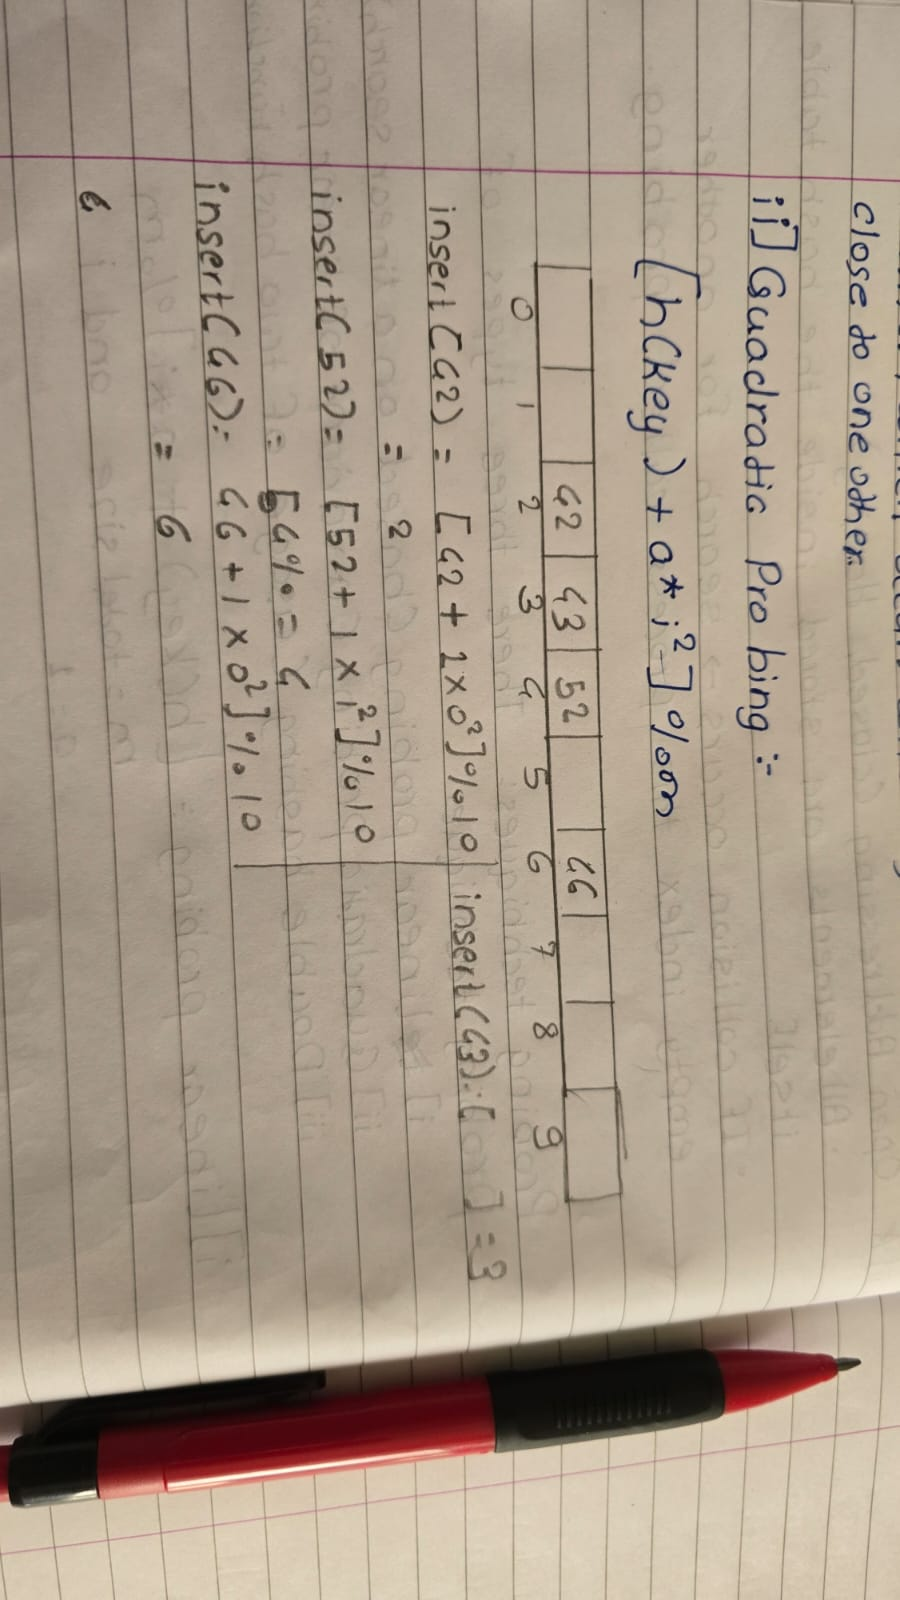 close to one other.
ii] Quadratic Probing :-
[h(key) + a*i²] % m
42 43 52 46
0 1 2 3 4 5 6 7 8 9
insert(42) = [42 + 1×0²]%10 insert(43):[ ] = 3
= 2
insert(52) = [52 + 1×1²]%10
[54% = 4
insert(46): 46 + 1×0²]%10
= 6